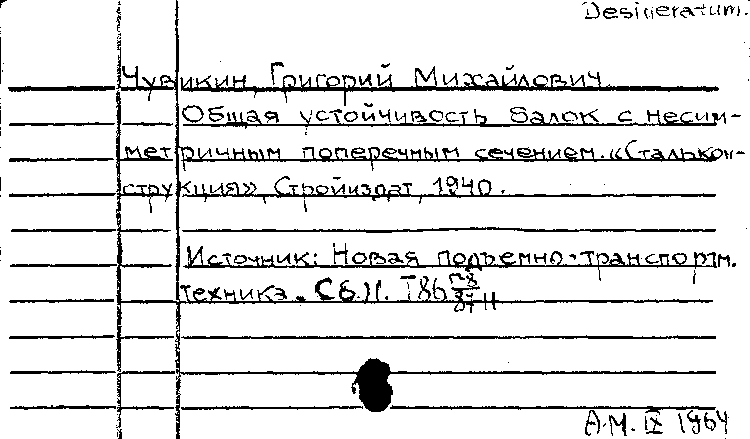 Desideratum.
Чувикин, Григорий Михайлович
Общая устойчивость балок с несим-
метричным поперечным сечением. «Сталькон-
струкция», Стройиздат, 1940.
Источник: Новая подъемно-транспортн.
техника. Сб. II.
А.М. IX 1964